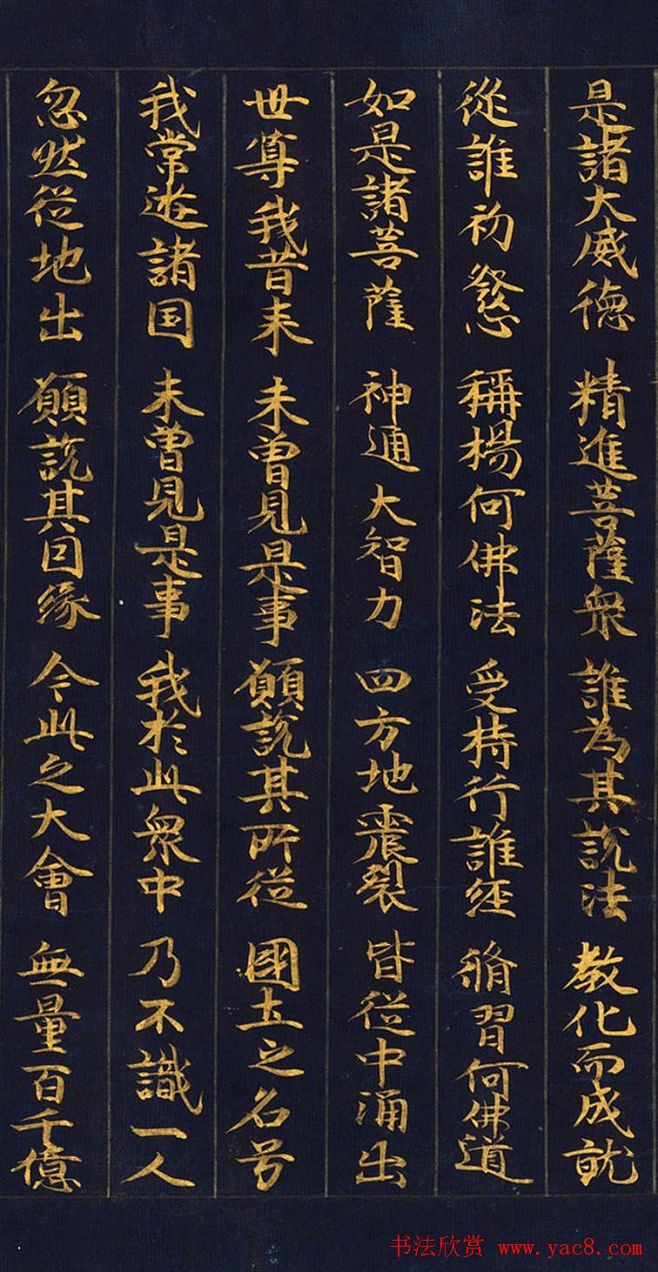 是諸大威德 精進菩薩衆 誰為其說法 教化而成就
從誰初發心 稱楊何佛法 受持行誰經 脩習何佛道
如是諸菩薩 神通大智力 四方地震裂 皆從中涌出
世尊我昔来 未曾見是事 願說其所從 國土之名号
我常遊諸国 未曾見是事 我於此衆中 乃不識一人
忽然從地出 願說其因緣 今此之大會 無量百千億
书法欣赏 www.yac8.com